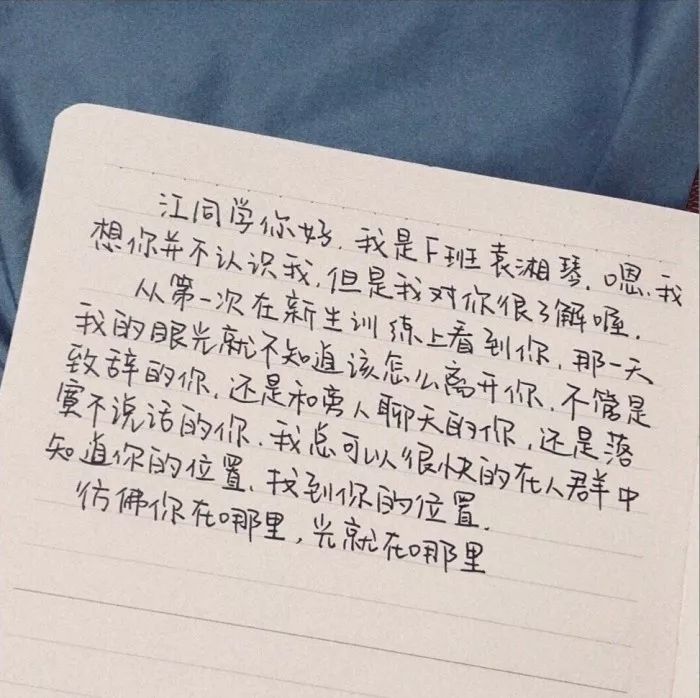 江同学你好.我是F班袁湘琴.嗯.我
想你并不认识我,但是我对你很了解喔.
从第一次在新生训练上看到你,那一天
我的眼光就不知道该怎么离开你,不管是
致辞的你,还是和旁人聊天的你,还是落
寞不说话的你.我总可以很快的在人群中
知道你的位置、找到你的位置.
彷佛你在哪里,光就在哪里